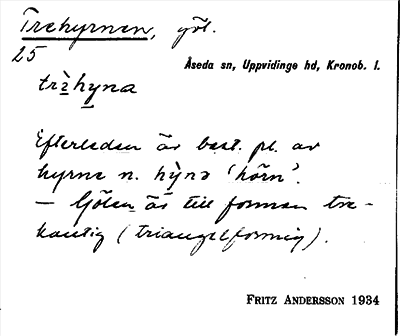 Trehyrnen, göl.
25
Åseda sn, Uppvidinge hd, Kronob. l.
trèhyna
Efterleden är best. pl. av
hyrna n. hỳ̨na 'hörn'.
— Gölen är till formen tre-
kantig (triangelformig).
FRITZ ANDERSSON 1934